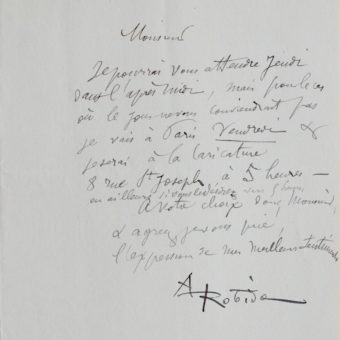 Monsieur
Je pourrai vous attendre Jeudi
dans l'après midi, mais pour le cas
où le jour ne vous conviendrait pas
je vais à Paris Vendredi &
je serai à la Caricature
8 rue St Joseph, à 5 heures —
ou ailleurs si vous le désirez vers 5 heures
A votre choix donc, Monsieur,
& agréez, je vous prie,
l'expression de mes meilleurs sentiments
A Robida